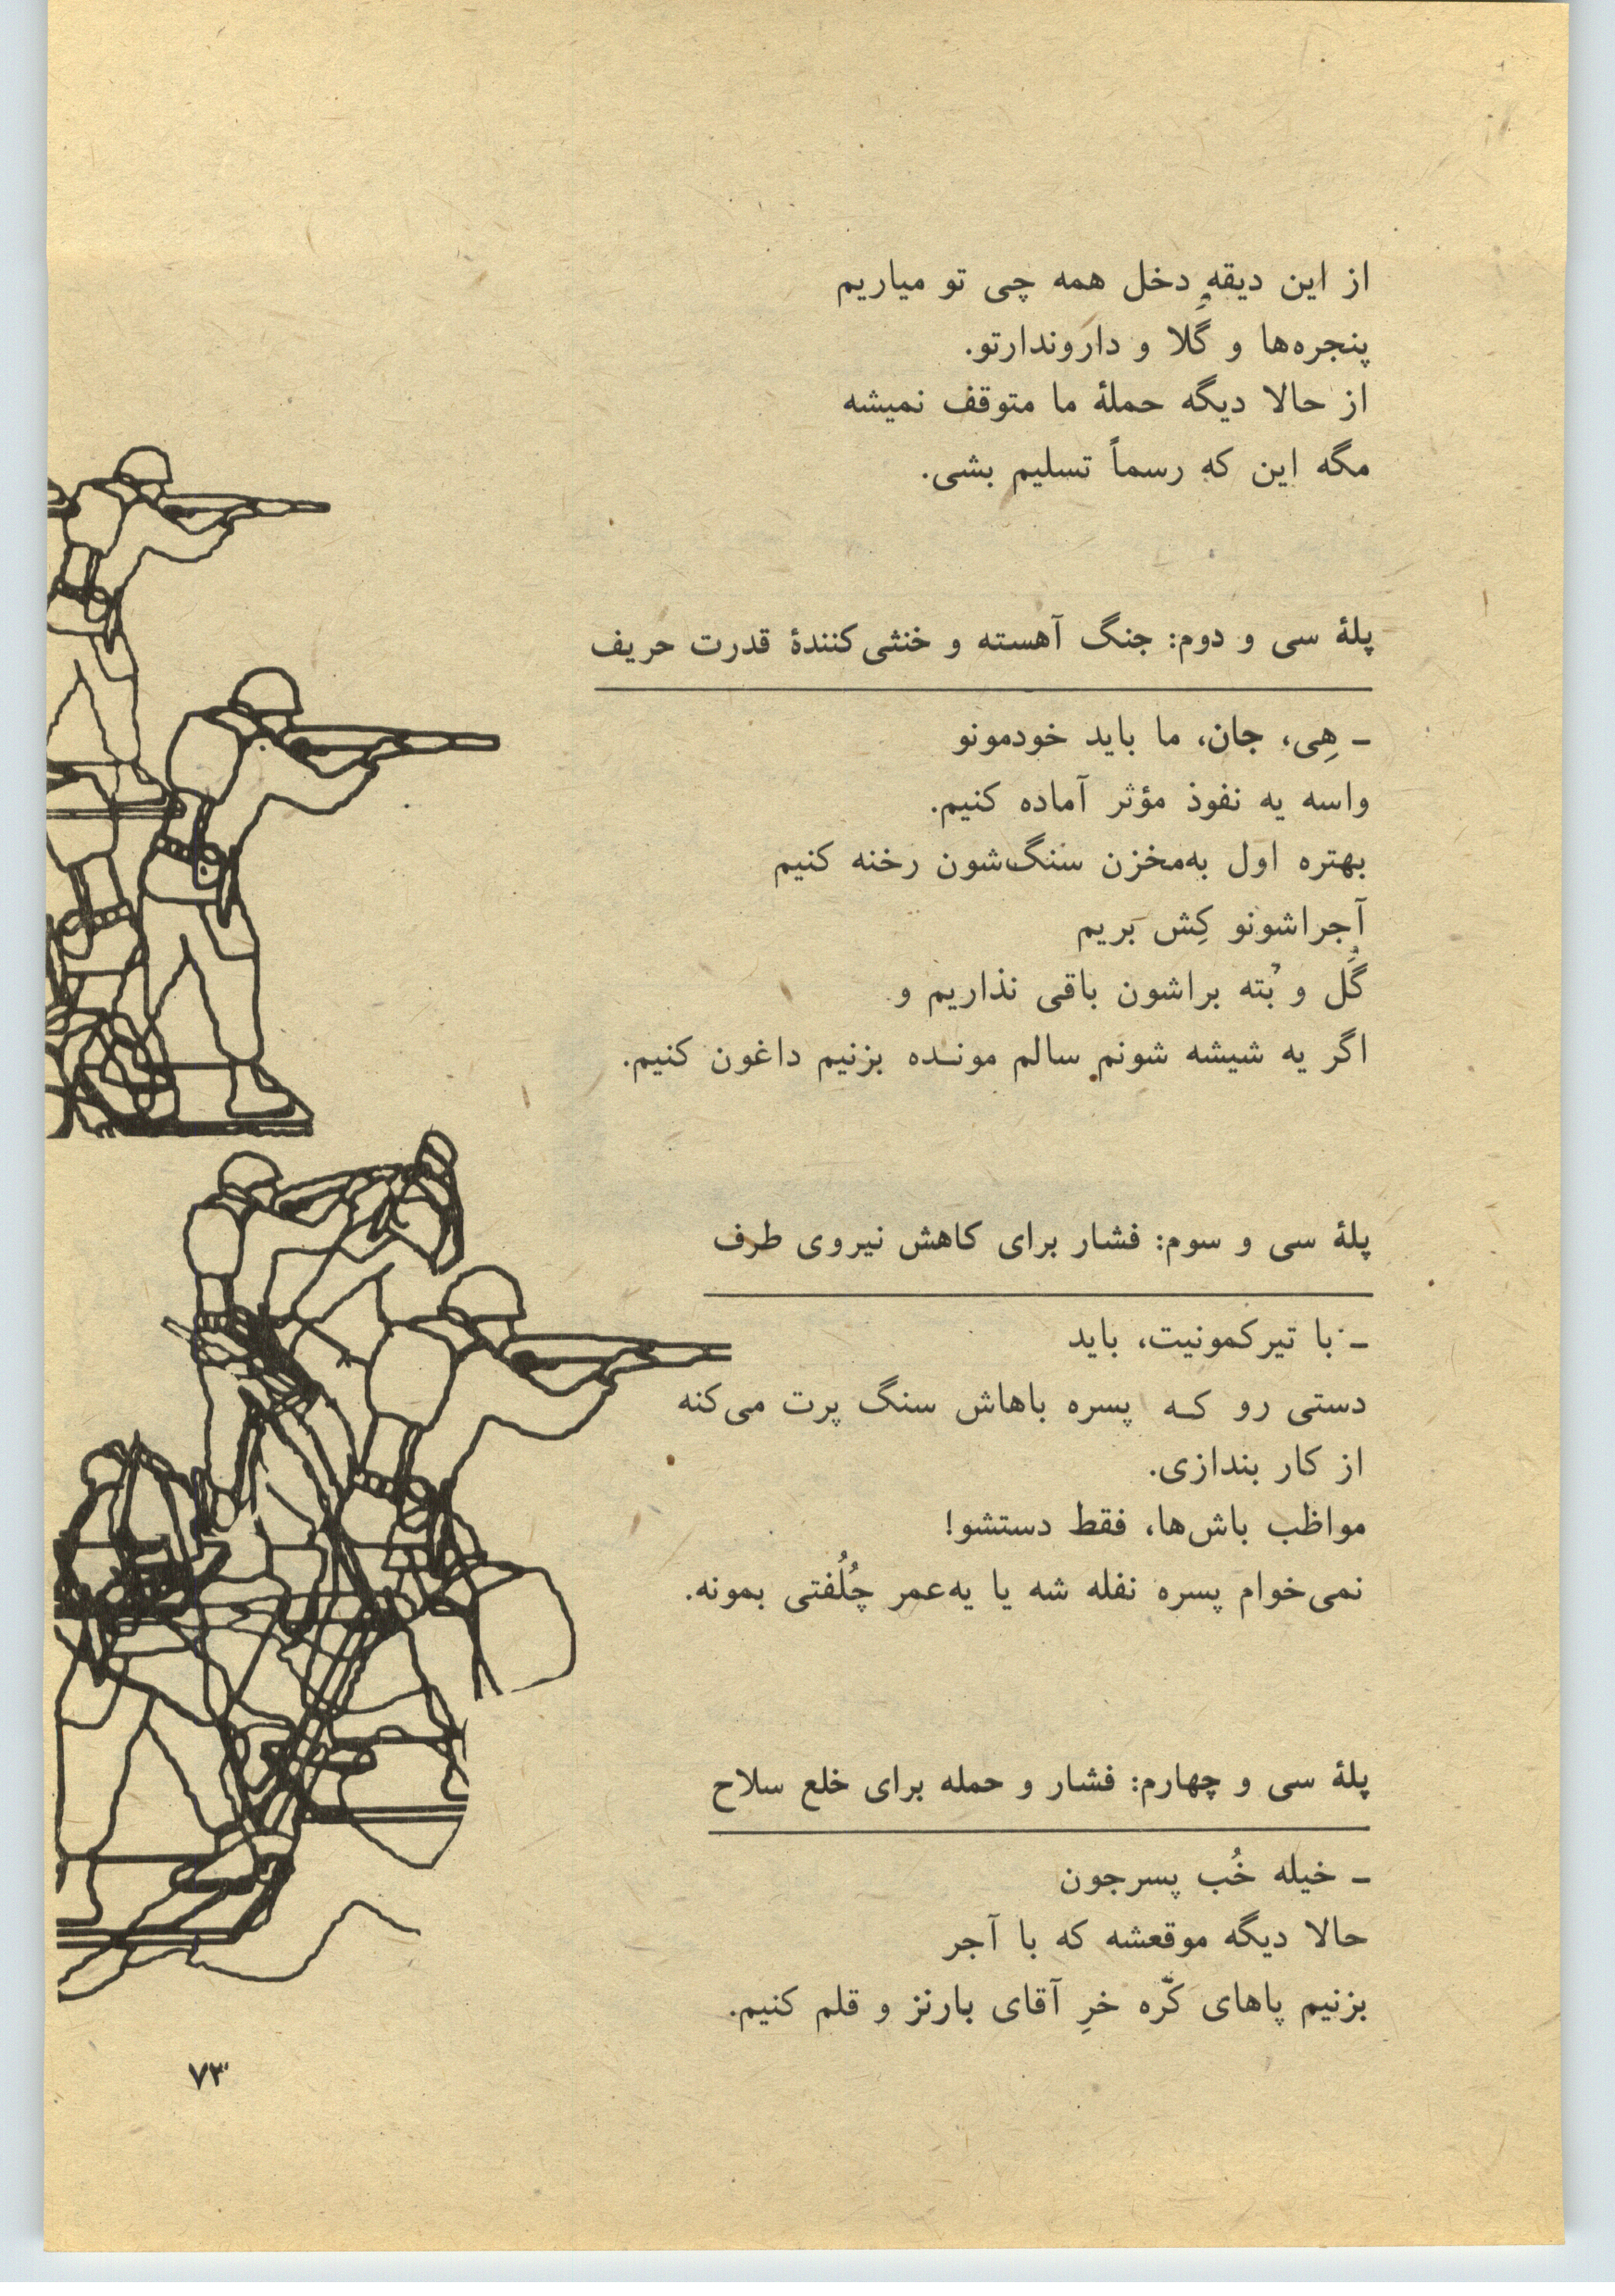 از این دیقه دخل همه چی تو میاریم
پنجره‌ها و گُلا و داروندارتو.
از حالا دیگه حملهٔ ما متوقف نمیشه
مگه این که رسماً تسلیم بشی.
پلهٔ سی و دوم: جنگ آهسته و خنثی‌کنندهٔ قدرت حریف
ـ هِی، جان، ما باید خودمونو
واسه یه نفوذ مؤثر آماده کنیم.
بهتره اول به‌مخزن سنگ‌شون رخنه کنیم
آجراشونو کِش بَریم
گُل و بُته براشون باقی نذاریم و
اگر یه شیشه شونم سالم مونـده بزنیم داغون کنیم.
پلهٔ سی و سوم: فشار برای کاهش نیروی طرف
ـ با تیرکمونیت، باید
دستی رو کـه پسره باهاش سنگ پرت می‌کنه
از کار بندازی.
مواظب باش‌ها، فقط دستشو!
نمی‌خوام پسره نفله شه یا یه‌عمر چُلُفتی بمونه.
پلهٔ سی و چهارم: فشار و حمله برای خلع سلاح
ـ خیله خُب پسرجون
حالا دیگه موقعشه که با آجر
بزنیم پاهای کرّه خرِ آقای بارنز و قلم کنیم.
۷۳